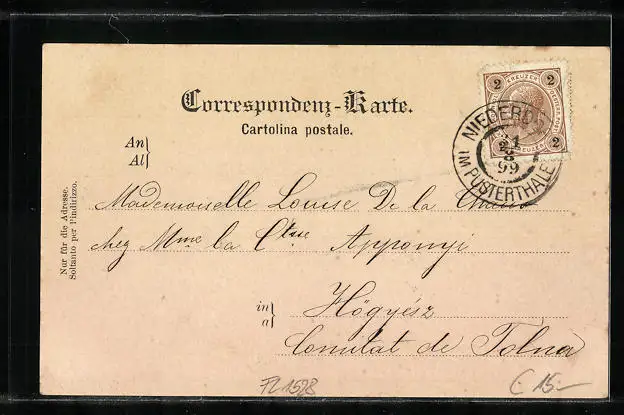 2 KREUZER 2
Correspondenz-Karte.
Cartolina postale.
NIEDERD
21
8
99
IM PUSTERTHALE
2 KREUZER 2
An
Al
Mademoiselle Louise De la
chez Mme la Ctsse Apponyi
in
a
Högyész
Comitat de Tolna
Nur für die Adresse.
Soltanto per l'indirizzo.
FL1528
€ 15.-